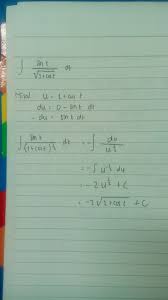 ∫ sin t / √(1+cos t) dt
u = 1 + cos t
du = 0 - sin t dt
- du = sin t dt
∫ sin t / (1+cos t)^½ dt = - ∫ du / u^½
= - ∫ u^-½ du
= -2 u^½ + C
= -2 √(1+cos t) + C